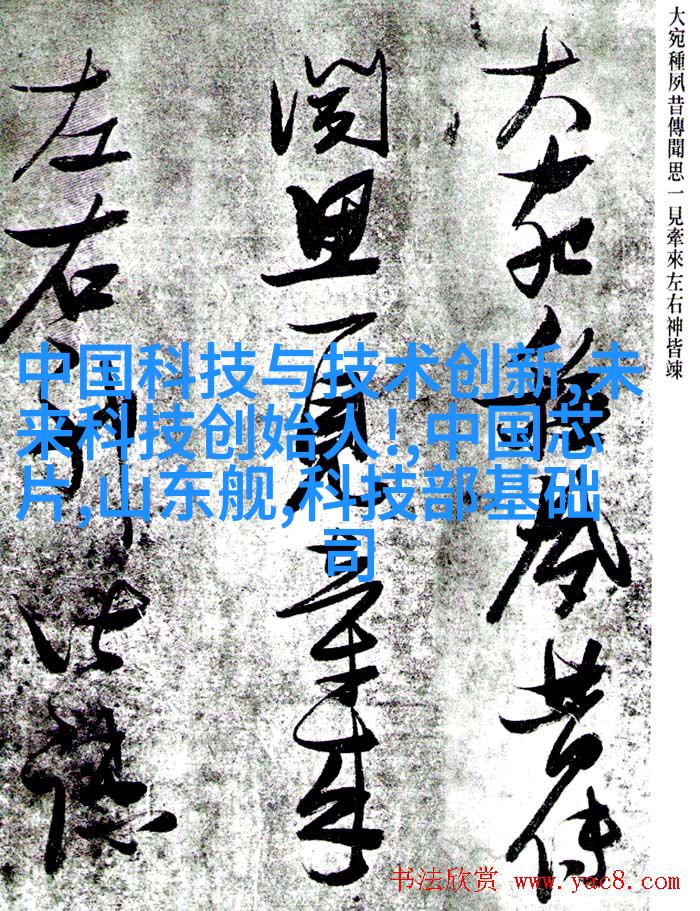 大宛種夙昔傳聞思一見牽來左右神皆竦
大宛種夙昔傳
聞思一見牽來
左右神皆竦
中国科技与技术创新,未
来科技创始人!,中国芯
片,山东舰,科技部基础
司
书法欣赏 www.yac8.com